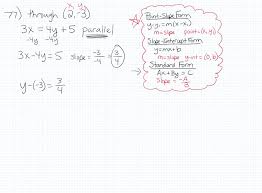 77) through (2,-3)
x₁ y₁
3x = 4y + 5 parallel
-4y -4y
3x-4y = 5 slope = -3/-4 = 3/4
y-(-3) = 3/4
Point-Slope Form
y-y₁=m(x-x₁)
m=slope point=(x,y)
Slope-Intercept Form
y=mx+b
m=slope y-int=(0,b)
Standard Form
Ax+By=C
Slope = -A/B